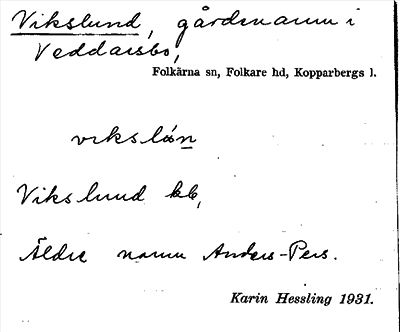 Vikslund, gårdsnamn i
Veddarsbo,
Folkärna sn, Folkare hd, Kopparbergs l.
vikslón
Vikslund kb,
Äldre namn Anders-Pers.
Karin Hessling 1931.